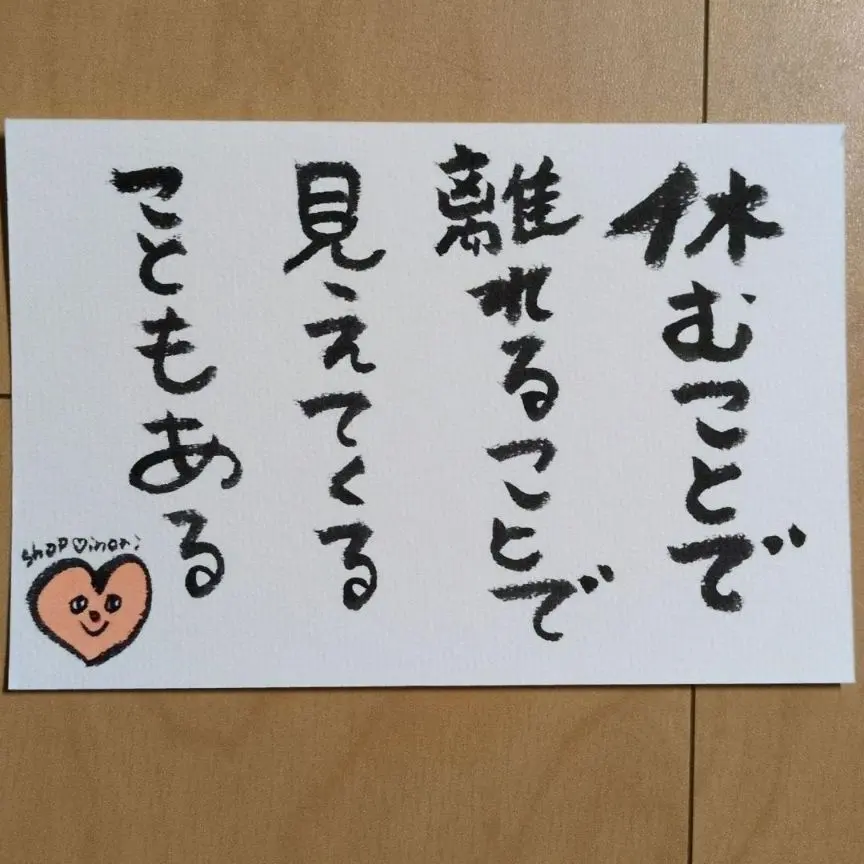 休むことで
離れることで
見えてくる
こともある
shop♡inori